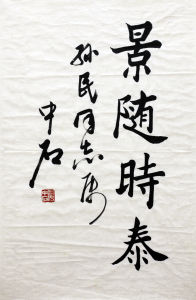 景随時泰
孙民同志属
中石